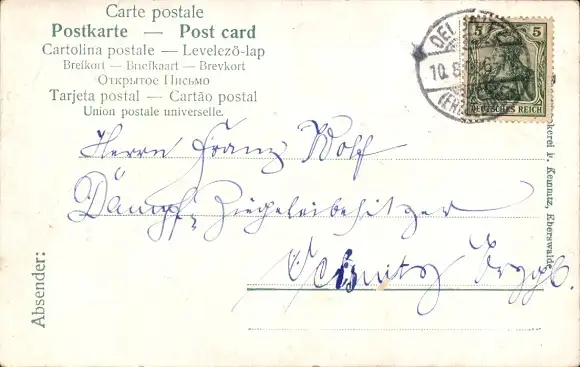 Carte postale
Postkarte — Post card
Cartolina postale — Levelező-lap
Brefkort — Briefkaart — Brevkort
Открытое Письмо
Tarjeta postal — Cartão postal
Union postale universelle.
5 5
DEUTSCHES REICH
10.8.
(ERZ
Herrn Franz Wolf
Dampf-Ziegeleibesitzer
Erzgb.
Absender:
Eberswalde